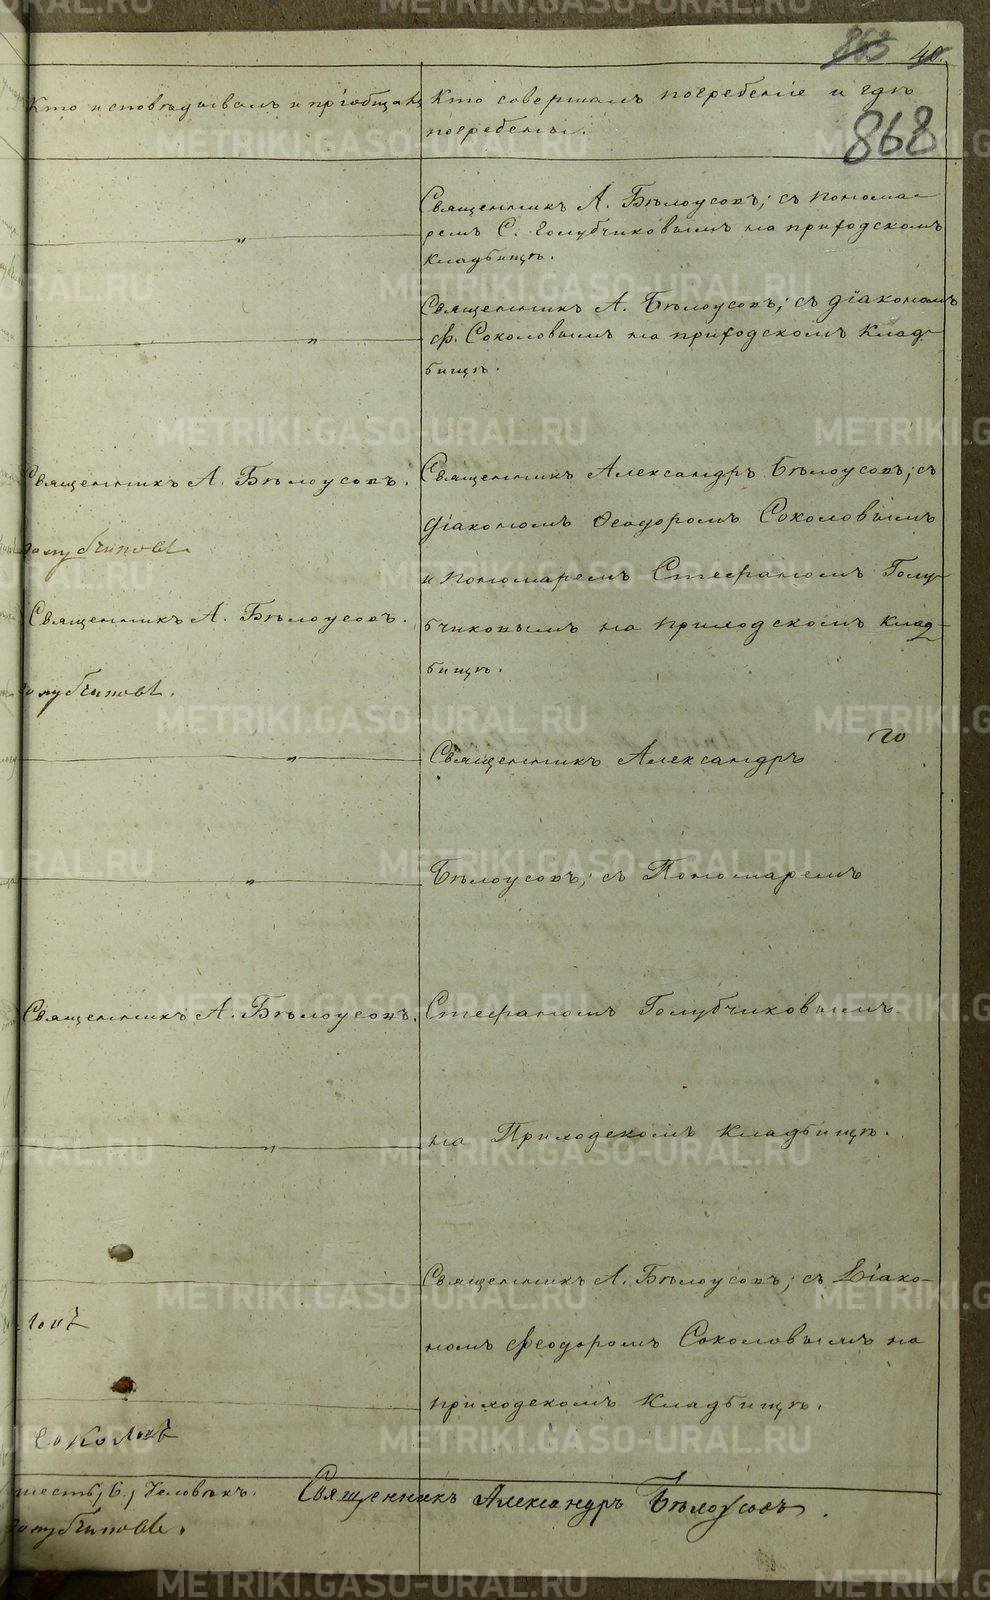 863 40.
Кто исповѣдывалъ и пріобщалъ
Кто совершалъ погребеніе и гдѣ
погребены.
868
Священникъ А. Бѣлоусовъ; съ понома-
ремъ С. Голубчиковымъ на приходскомъ
кладбищѣ.
Священникъ А. Бѣлоусовъ; съ діакономъ
Ѳ. Соколовымъ на приходскомъ клад-
бищѣ.
Священникъ А. Бѣлоусовъ.
Священникъ Александръ Бѣлоусовъ; съ
діакономъ Ѳеодоромъ Соколовымъ
и пономаремъ Стефаномъ Голу-
Священникъ А. Бѣлоусовъ.
бчиковымъ на приходскомъ клад-
бищѣ.
Священникъ Александръ
Бѣлоусовъ; съ Пономаремъ
Священникъ А. Бѣлоусовъ.
Стефаномъ Голубчиковымъ
на Приходскомъ кладбищѣ.
Священникъ А. Бѣлоусовъ; съ Діако-
номъ Феодоромъ Соколовымъ на
приходскомъ кладбищѣ.
Соколовъ
шесть, 6, человѣкъ. Священникъ Александръ Бѣлоусовъ.
METRIKI.GASO-URAL.RU